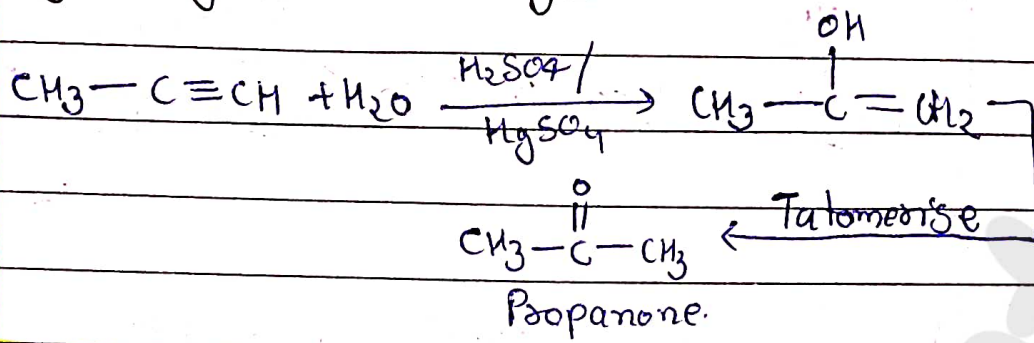 OH
CH3 — C ≡ CH + H2O H2SO4/ HgSO4 → CH3 — C = CH2
O
CH3 — C — CH3 ← Tatomerise
Propanone.